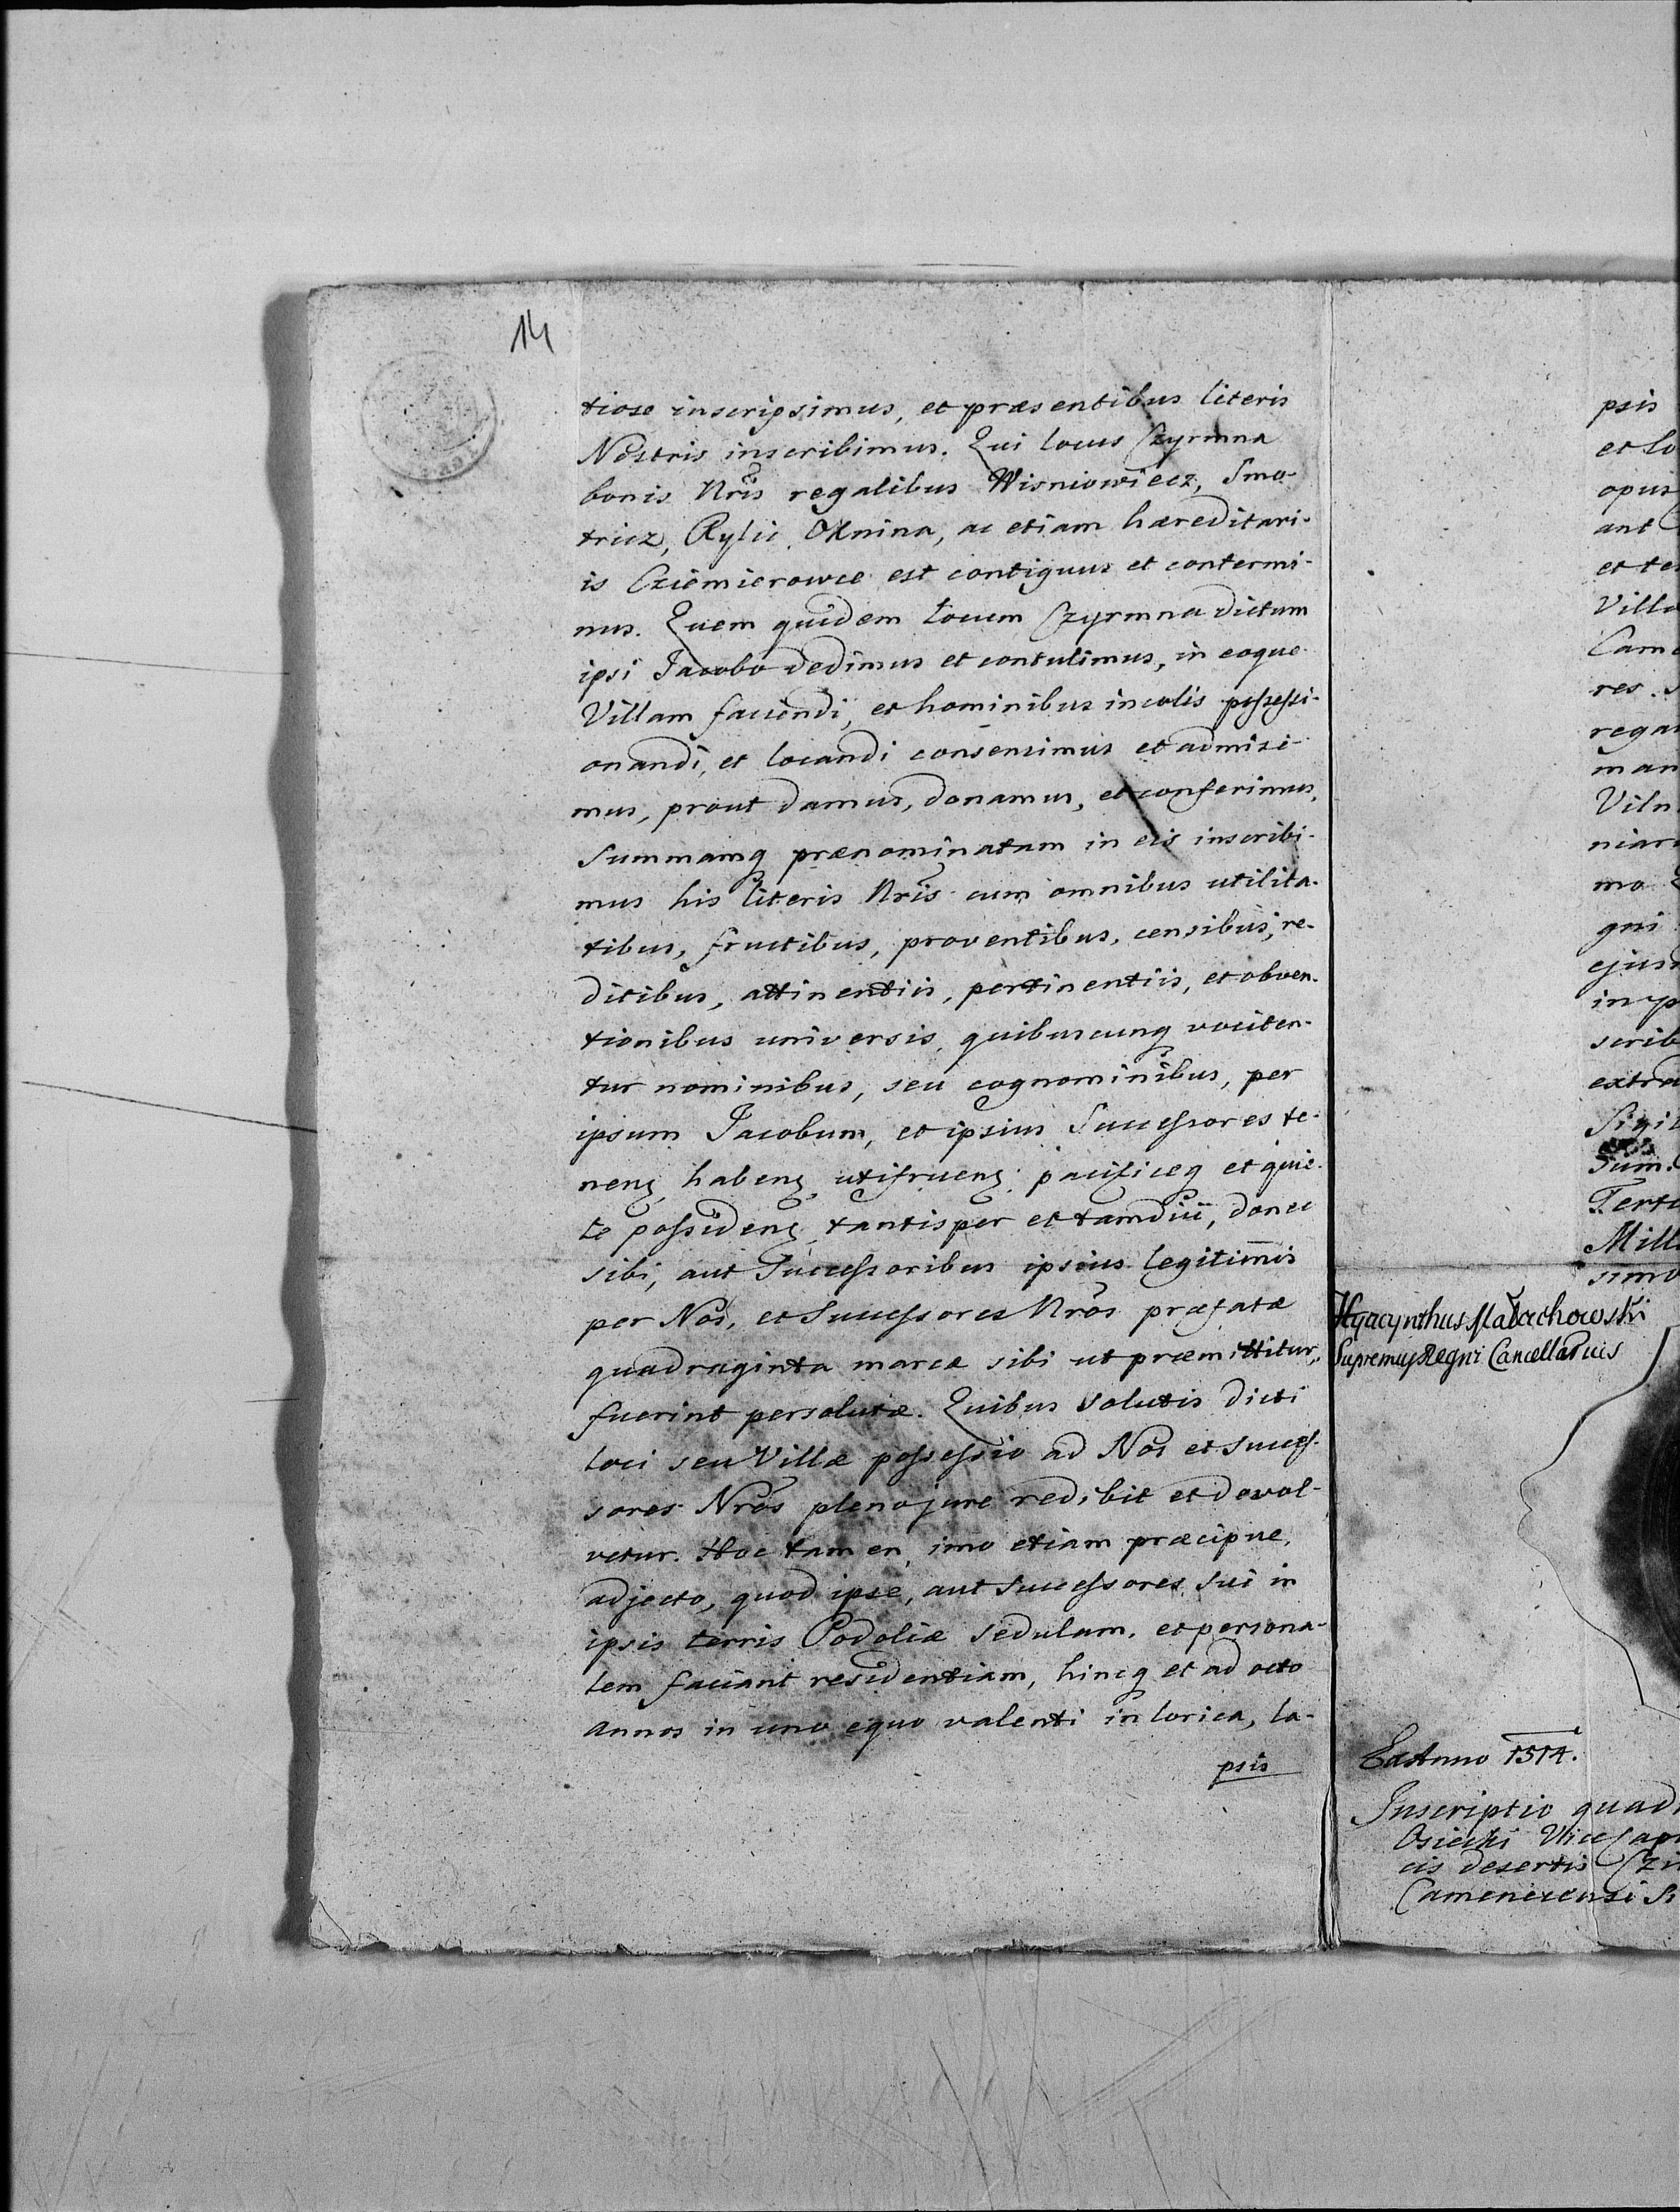 14
tiose inscripsimus, et præsentibus literis
Nostris inscribimus. Qui locus Czyrmna
bonis Nris regalibus Wisniowiecz, Smo-
tricz, Rylic, Oknina, ac etiam hæreditari-
is Cziemierowce est contiguus et contermi-
nus. Quem quidem locum Czyrmna dictum
ipsi Jacobo dedimus et contulimus, in eoque
Villam faciendi, et hominibus incolis possessi-
onandi, et locandi consensimus et admisi-
mus, prout damus, donamus, et conferimus,
Summamq prænominatam in eis inscribi-
mus his literis Nris cum omnibus utilita-
tibus, fructibus, proventibus, censibus, re-
ditibus, attinentiis, pertinentiis, et obven-
tionibus universis, quibuscunq vociten-
tur nominibus, seu cognominibus, per
ipsum Jacobum, et ipsius Successores te-
nenz, habenz, utifruenz, pacificeq et quie-
te possidenz, tantisper et tamdiu, donec
sibi, aut Successoribus ipsius legitimis
per Nos, et Successores Nros præfatæ
quadraginta marcæ sibi ut præmittitur,
fuerint persolutæ. Quibus solutis dicti
loci seu Villæ possessio ad Nos et Succes-
sores Nros pleno jure redibit et devol-
vetur. Hoc tamen, imo etiam præcipue,
adjecto, quod ipse, aut Successores sui in
ipsis terris Podoliæ sedulam, et persona-
lem faciant residentiam, hincq et ad octo
annos in uno equo valenti in lorica, la-
psis
psis
et lo
opus
ant
et te
Villa
Came
res. S
regal
man
Viln
niar
mo
gni
ejusd
in p
scrib
extra
Sigil
Sum.
Terti
Mill
simo
Hyacynthus Małachowski
Supremus Regni Cancellarius
Ex Anno 1514.
Inscriptio quadr
Osiecki ViceCap
cis desertis Czi
Camenecensi Si